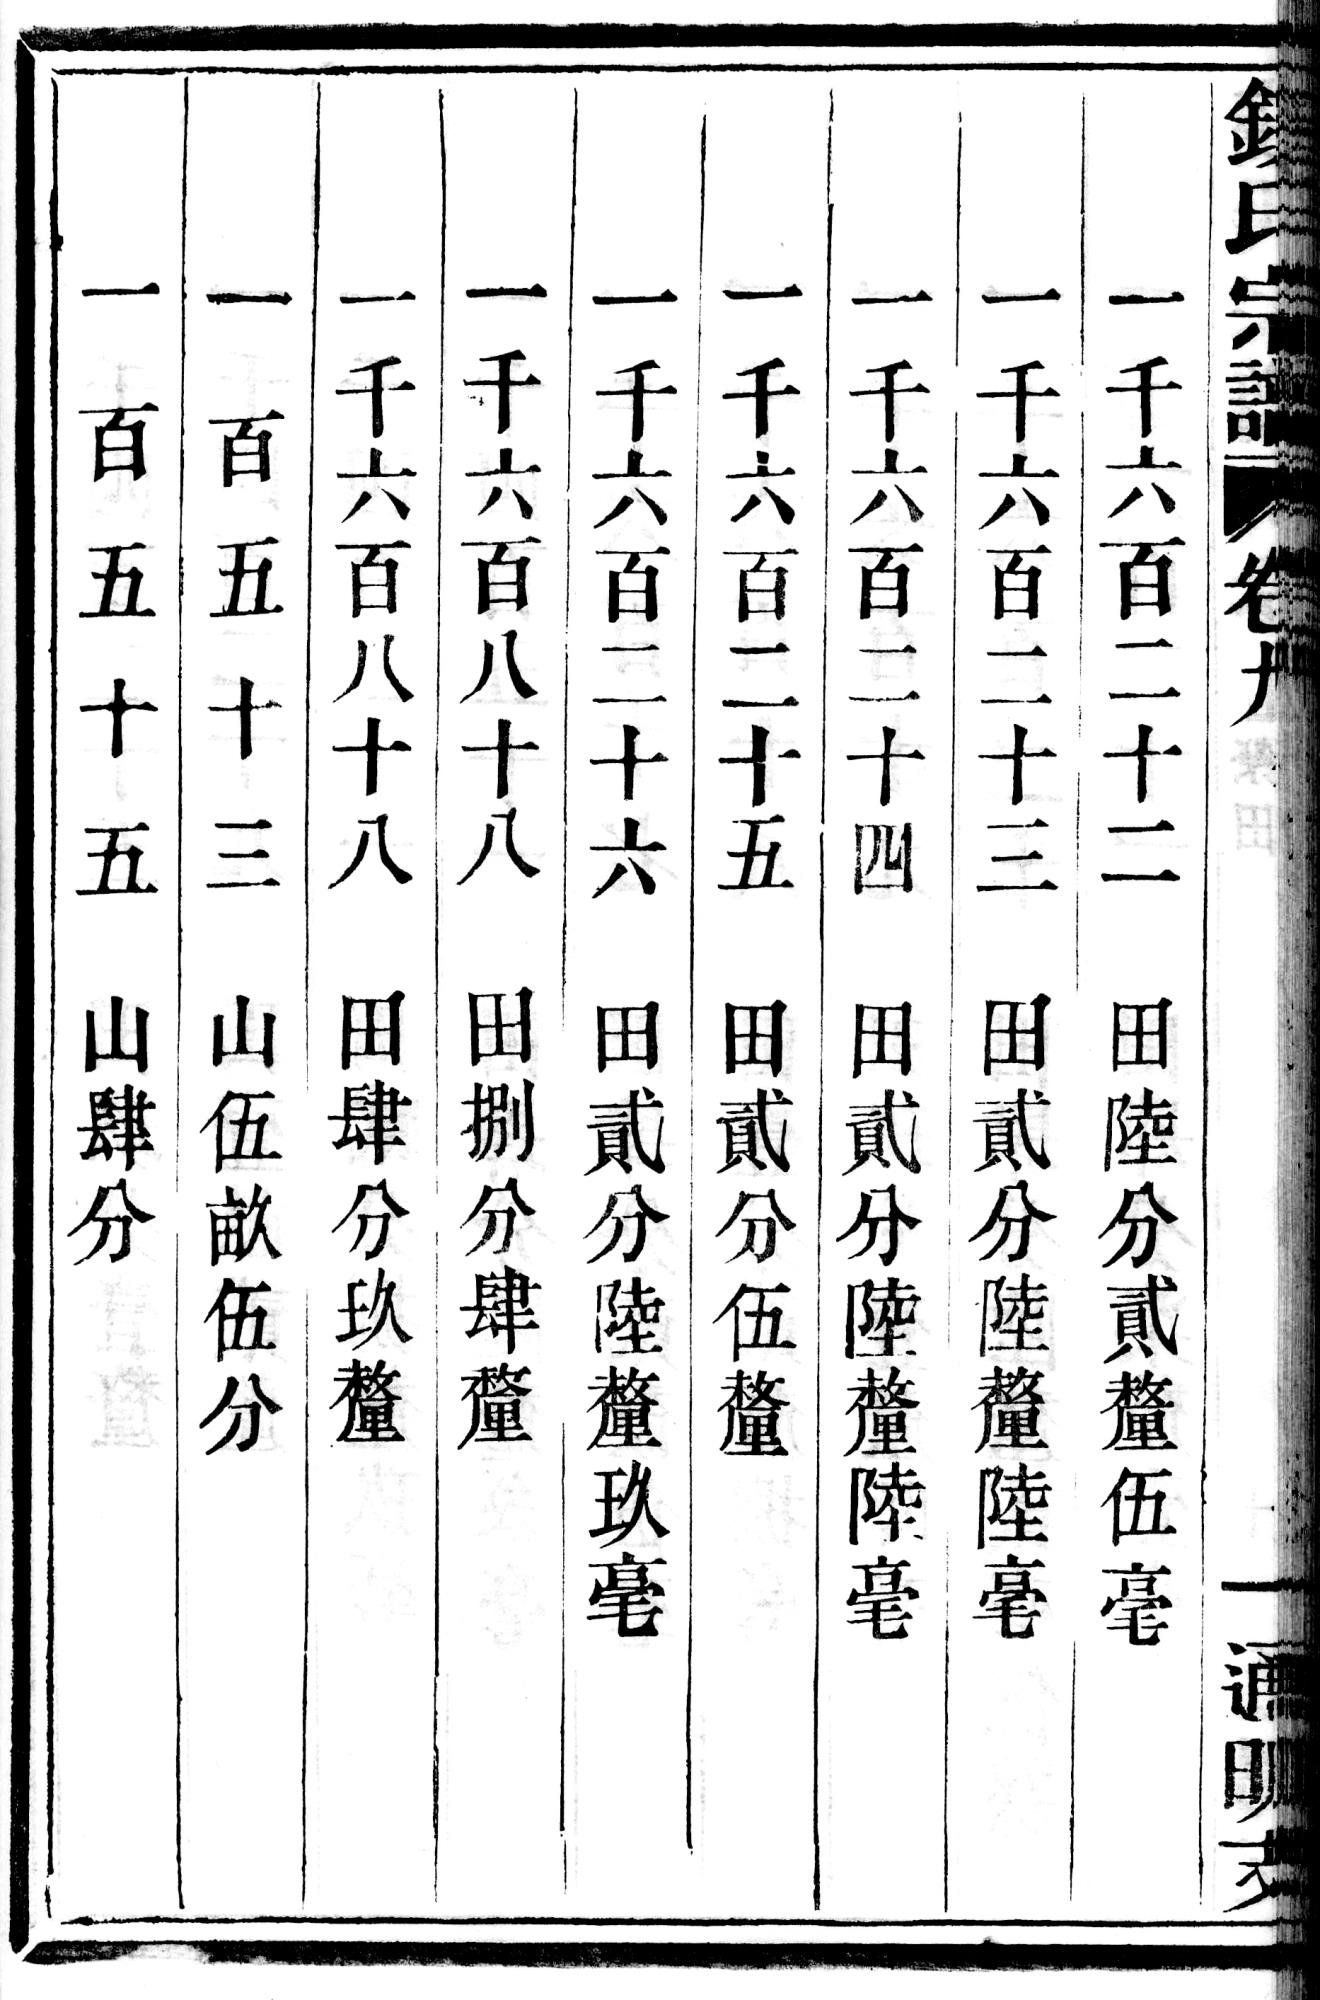 氏宗譜 卷九 一 通明支
一千六百二十二 田陸分貳釐伍毫
一千六百二十三 田貳分陸釐陸毫
一千六百二十四 田貳分陸釐陸毫
一千六百二十五 田貳分伍釐
一千六百二十六 田貳分陸釐玖毫
一千六百八十八 田捌分肆釐
一千六百八十八 田肆分玖釐
一百五十三 山伍畝伍分
一百五十五 山肆分